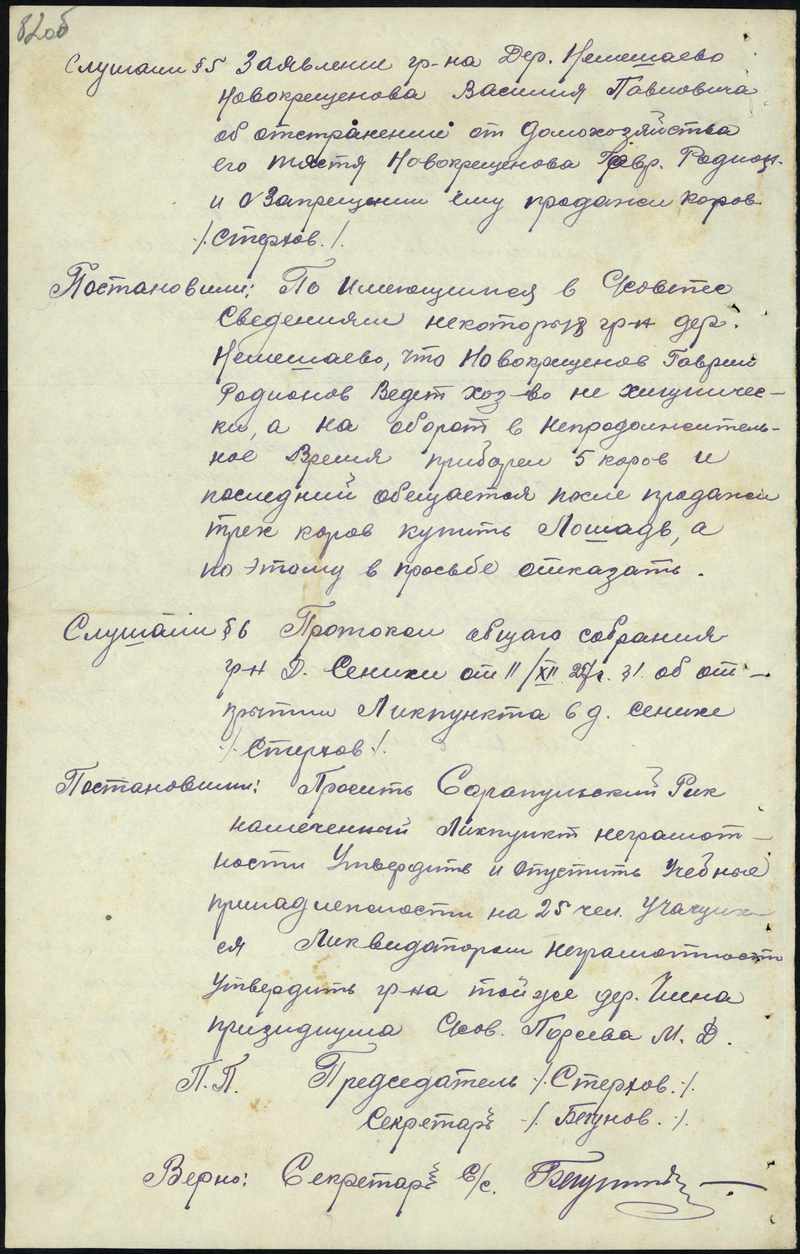 82об
Слушали § 5 Заявление гр-на Дер. Немешаево
Новокрещенова Василия Павловича
об отстранении от домохозяйства
его тястя Новокрещенова Гавр. Родион.
и о Запрещении ему продажи коров
/. Стерхов. /.
Постановили: По имеющимся в С/совете
Сведениям некоторых гр-н дер.
Немешаево, что Новокрещенов Гаврил
Родионов Ведет хоз-во не хищничес-
ки, а на оборот в непродолжитель-
ное Время приобрел 5 коров и
последний обещается после продажи
трех коров купить Лошадь, а
по этому в просьбе отказать.
Слушали § 6 Протокол общаго собрания
гр-н Д. Сенихи от 11/XII 25/г. об от-
крытии Ликпункта в д. Сенихе
/. Стерхов /.
Постановили: Просить Сарапульский Рик
намеченный Ликпункт неграмот-
ности Утвердить и отпустить Учебные
принадлежности на 25 чел. Учащих-
ся Ликвидатором неграмотности
Утвердить гр-на той же дер. Члена
призидиума С/сов. Порсева М. Д.
П.П. Председатель /. Стерхов. /.
Секретарь /. Бегунов. /.
Верно: Секретарь С/с. Бегунов